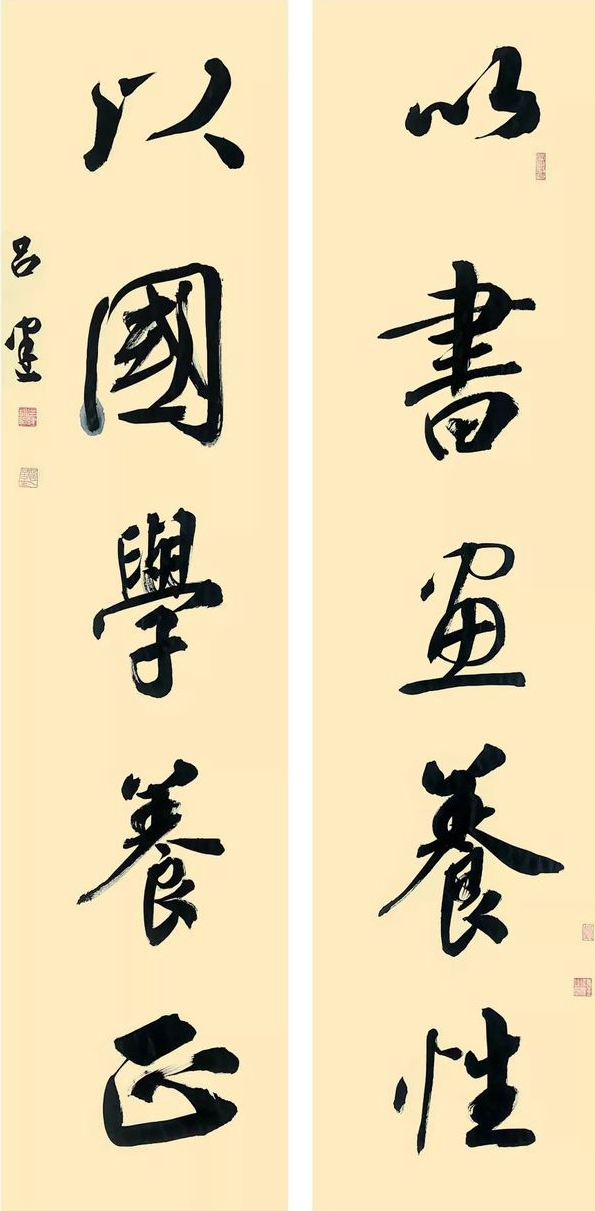 以書畫養性
以國學養正
吕建